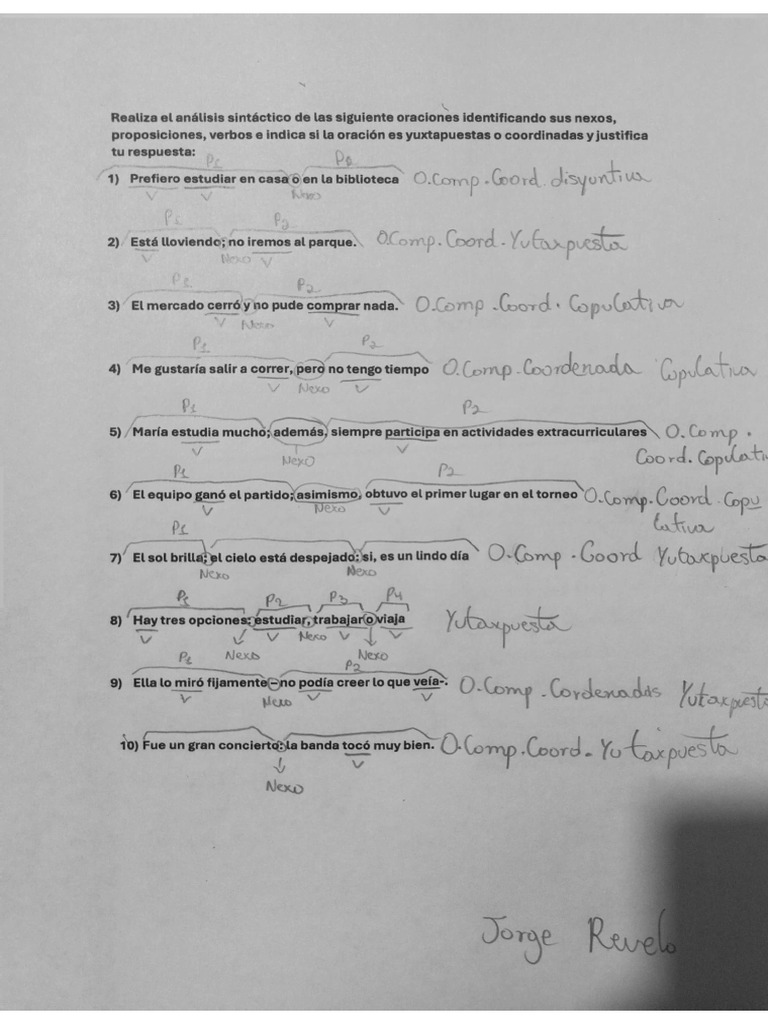 Realiza el análisis sintáctico de las siguiente oraciones identificando sus nexos,
proposiciones, verbos e indica si la oración es yuxtapuestas o coordinadas y justifica
tu respuesta:
P1 P2
1) Prefiero estudiar en casa o en la biblioteca O.Comp.Coord.disyuntiva
V V Nexo
P1 P2
2) Está lloviendo; no iremos al parque. O.Comp.Coord.Yutaxpuesta
V Nexo V
P1 P2
3) El mercado cerró y no pude comprar nada. O.Comp.Coord.Copulativa
V Nexo V
P1 P2
4) Me gustaría salir a correr, pero no tengo tiempo O.Comp.Coordenada Copulativa
V Nexo V
P1 P2
5) María estudia mucho; además, siempre participa en actividades extracurriculares O.Comp.
V Nexo V Coord.Copulati
P1 P2
6) El equipo ganó el partido; asimismo, obtuvo el primer lugar en el torneo O.Comp.Coord.Copu
V Nexo V lativa
P1
7) El sol brilla; el cielo está despejado: si, es un lindo día O.Comp.Coord Yutaxpuesta
Nexo Nexo
P1 P2 P3 P4
8) Hay tres opciones: estudiar, trabajar o viaja Yutaxpuesta
V V Nexo V V
Nexo Nexo
P1 P2
9) Ella lo miró fijamente –no podía creer lo que veía-. O.Comp.Cordenadas Yutaxpuest
V Nexo V V
10) Fue un gran concierto: la banda tocó muy bien. O.Comp.Coord.Yutaxpuesta
V
Nexo
Jorge Revelo